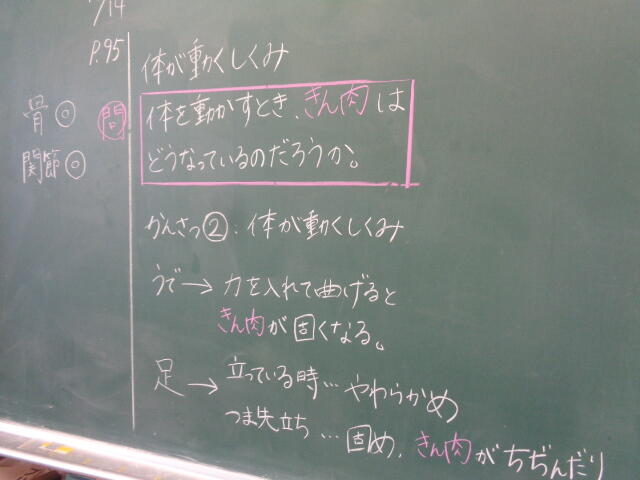 7/14
P.95
体が動くしくみ
骨◎
関節◎
問
体を動かすとき、きん肉は
どうなっているのだろうか。
かんさつ②:体が動くしくみ
うで→力を入れて曲げると
きん肉が固くなる。
足→立っている時…やわらかめ
つま先立ち…固め、きん肉がちぢんだり